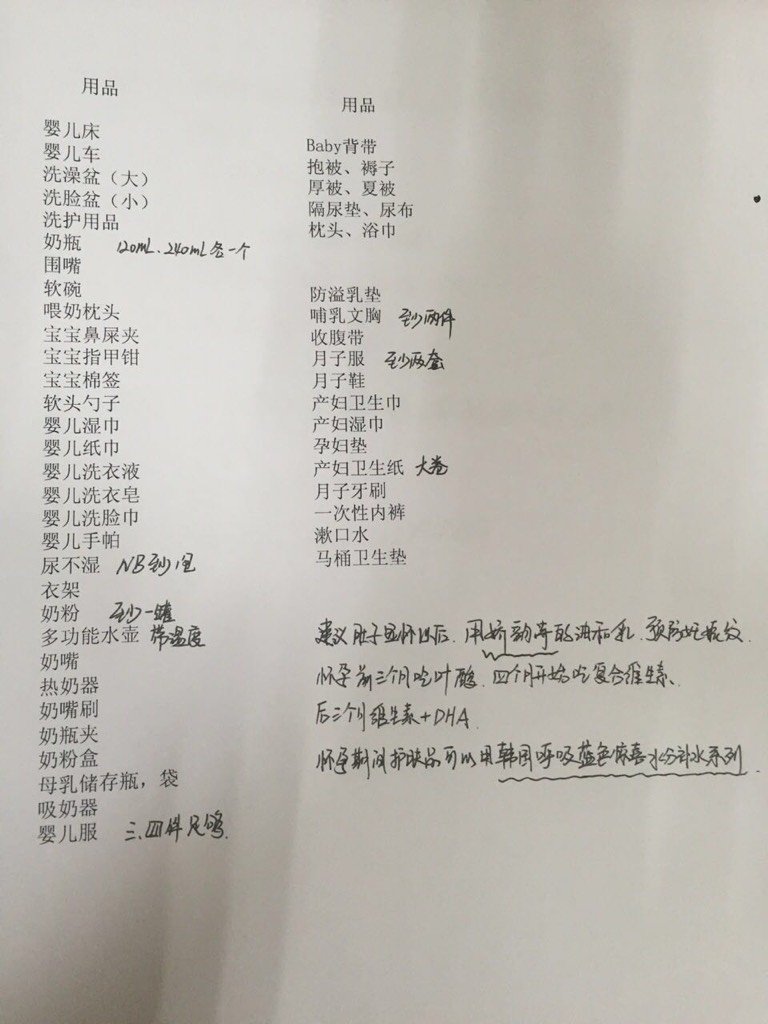 用品
婴儿床
婴儿车
洗澡盆（大）
洗脸盆（小）
洗护用品
奶瓶 120mL、240mL各一个
围嘴
软碗
喂奶枕头
宝宝鼻屎夹
宝宝指甲钳
宝宝棉签
软头勺子
婴儿湿巾
婴儿纸巾
婴儿洗衣液
婴儿洗衣皂
婴儿洗脸巾
婴儿手帕
尿不湿 NB至少1包
衣架
奶粉 至少一罐
多功能水壶 带温度
奶嘴
热奶器
奶嘴刷
奶瓶夹
奶粉盒
母乳储存瓶，袋
吸奶器
婴儿服 三、四件足够.
用品
Baby背带
抱被、褥子
厚被、夏被
隔尿垫、尿布
枕头、浴巾
防溢乳垫
哺乳文胸 至少两件
收腹带
月子服 至少两套
月子鞋
产妇卫生巾
产妇湿巾
孕妇垫
产妇卫生纸 大卷
月子牙刷
一次性内裤
漱口水
马桶卫生垫
建议肚子显怀以后.用娇韵诗的油和乳.预防妊娠纹.
怀孕前三个月吃叶酸.四个月开始吃复合维生素、
后三个月维生素+DHA.
怀孕期间护肤品可以用韩国呼吸蓝色惊喜水分补水系列.